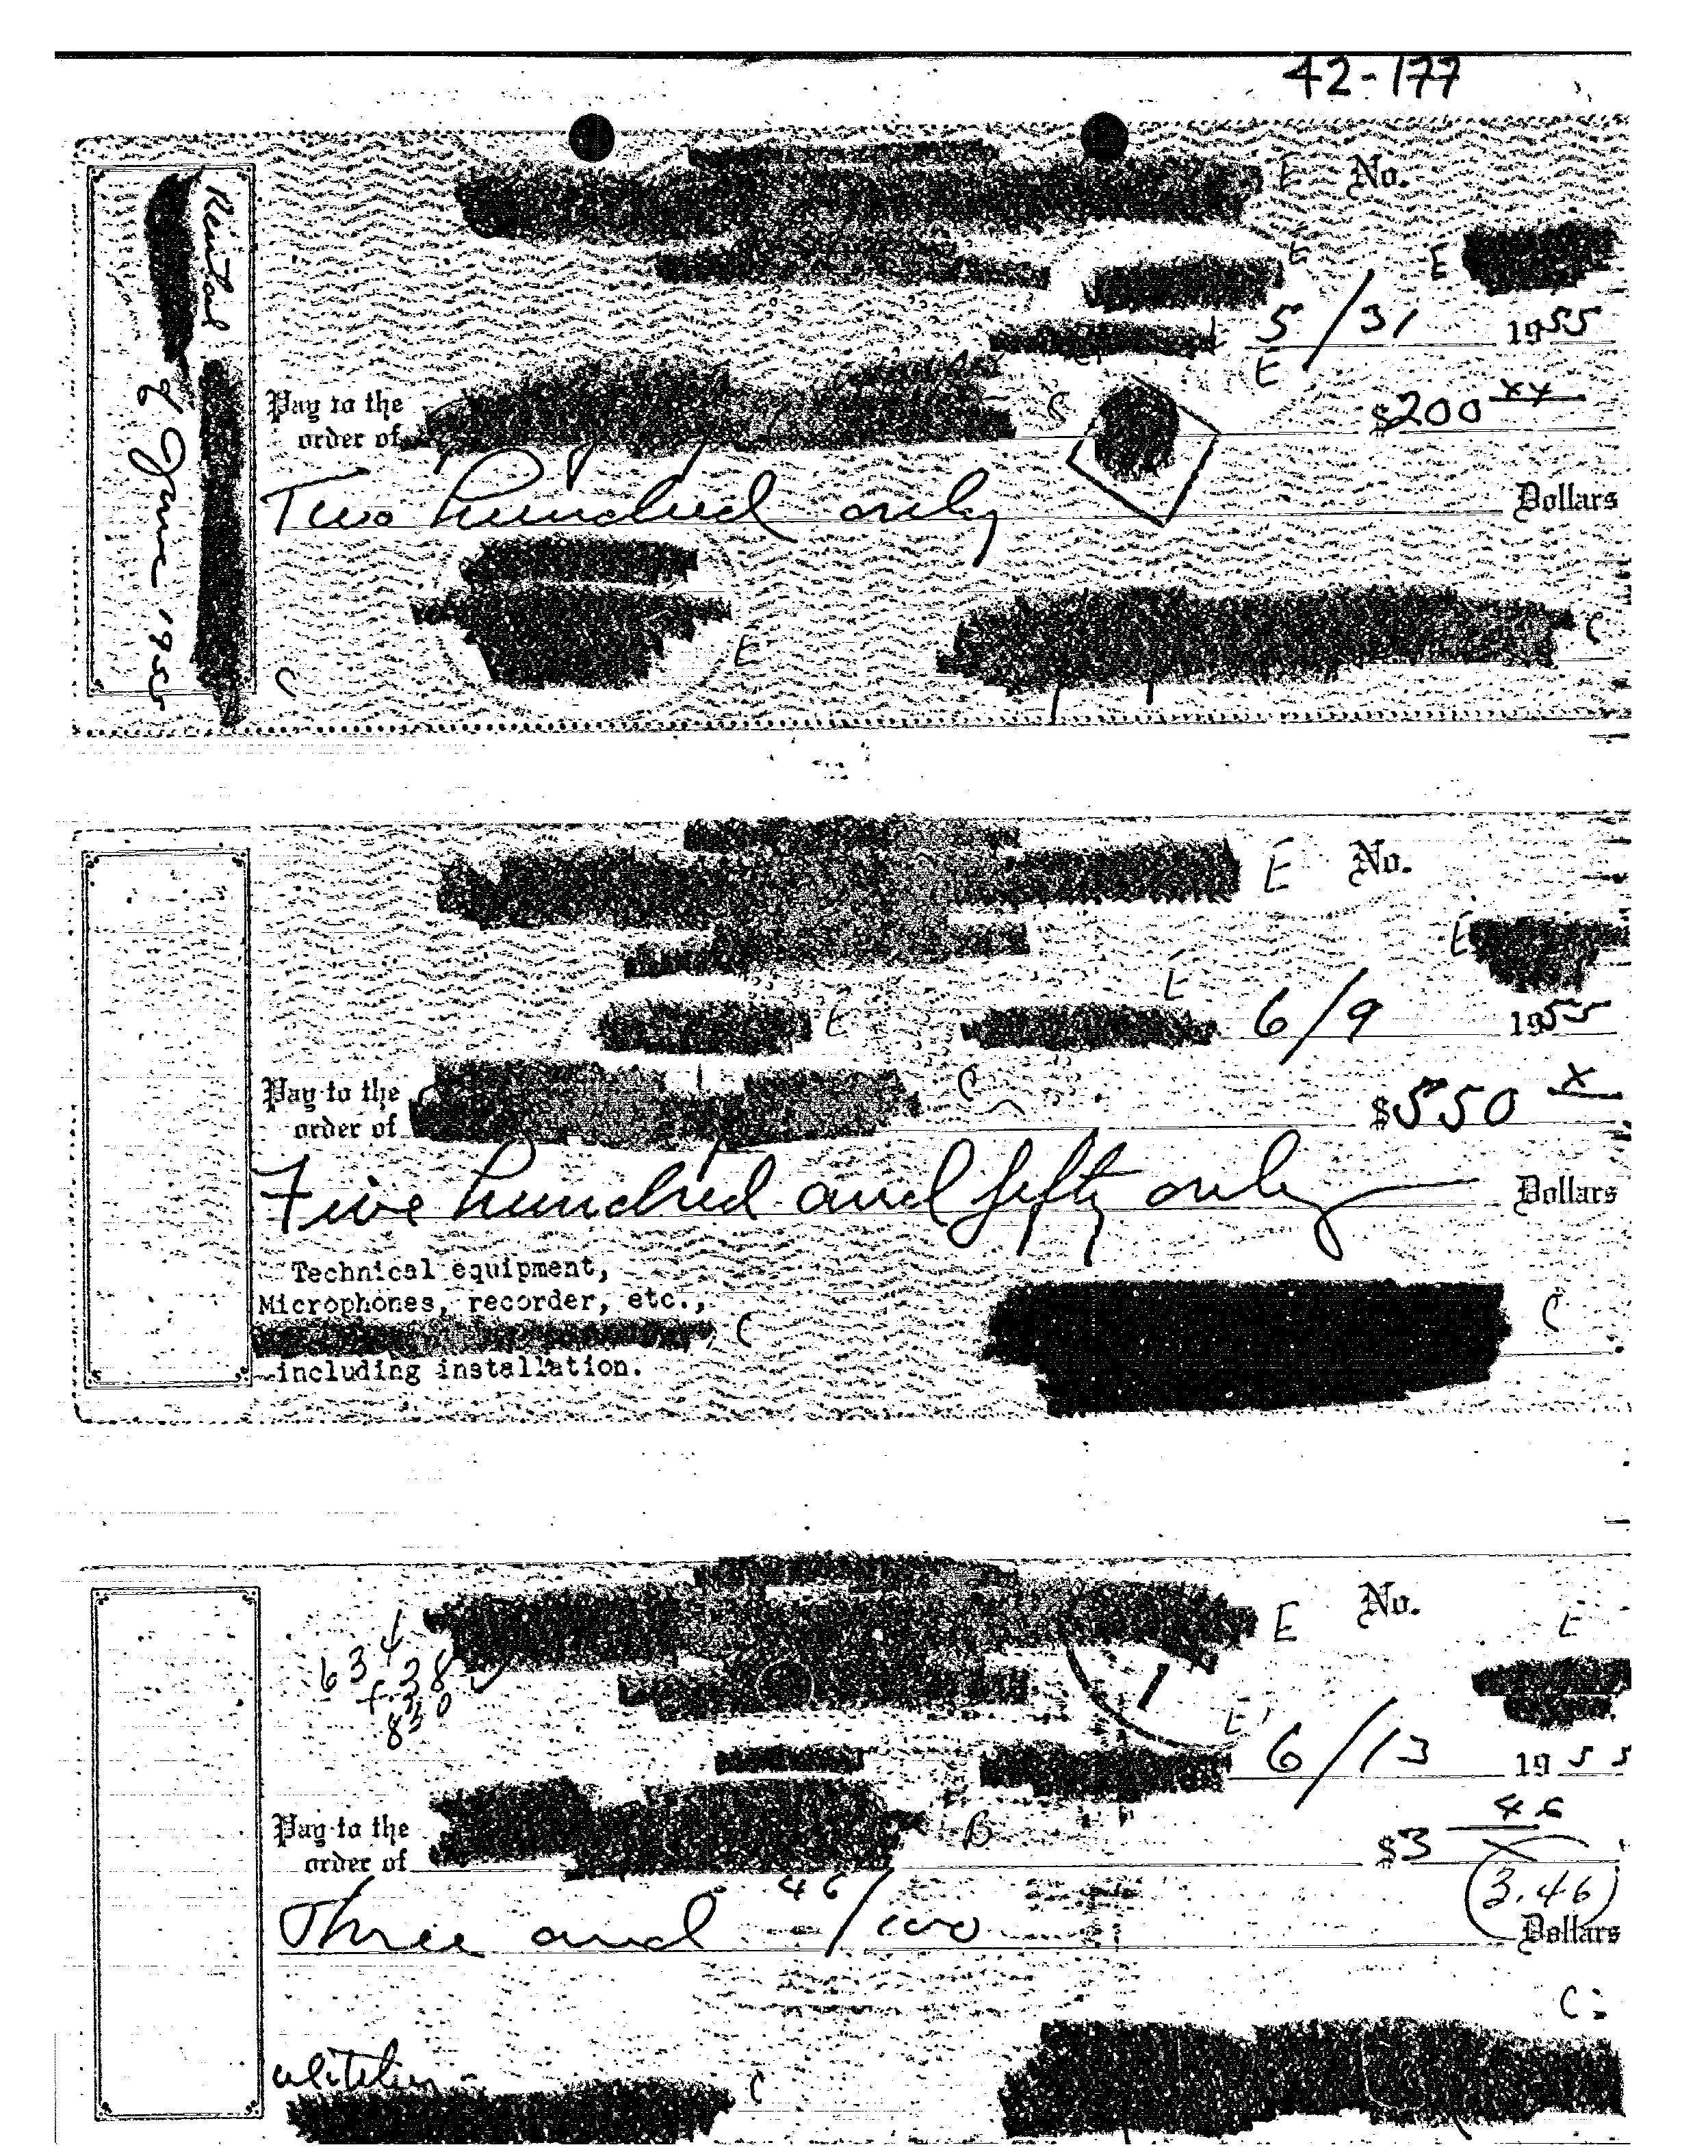 42-177
E No.
E
E
5/31 1955
E
Pay to the
order of C
$200 xx
Two hundred only Dollars
E
C
C
Rental
8 June 1955
E No.
E
E
E
6/9 1955
Pay to the
order of C
$550 x
Five hundred and fifty only Dollars
Technical equipment,
Microphones, recorder, etc.,
C
including installation.
C
E No.
E
634
+.38
830
1
E
6/13 1955
Pay to the
order of B
$3 46
3.46
Three and 46/100 Dollars
C
C